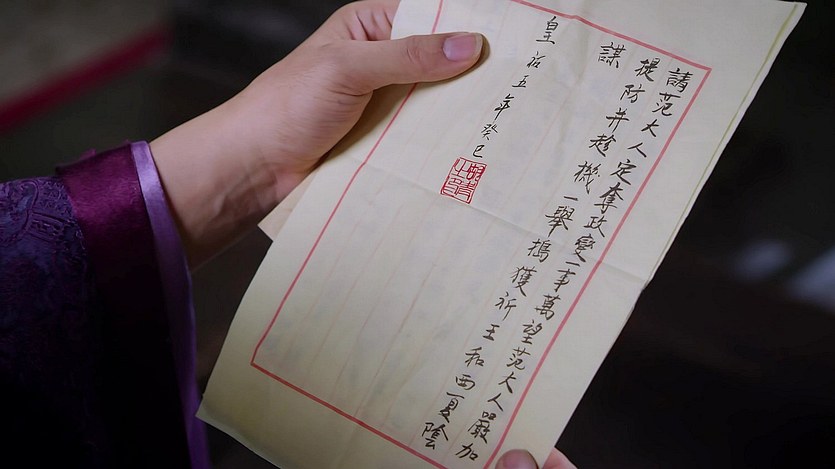 請范大人定奪政變一事萬望范大人嚴加
提防并趁機一舉搗獲祈王和西夏陰
謀
皇祐五年癸巳